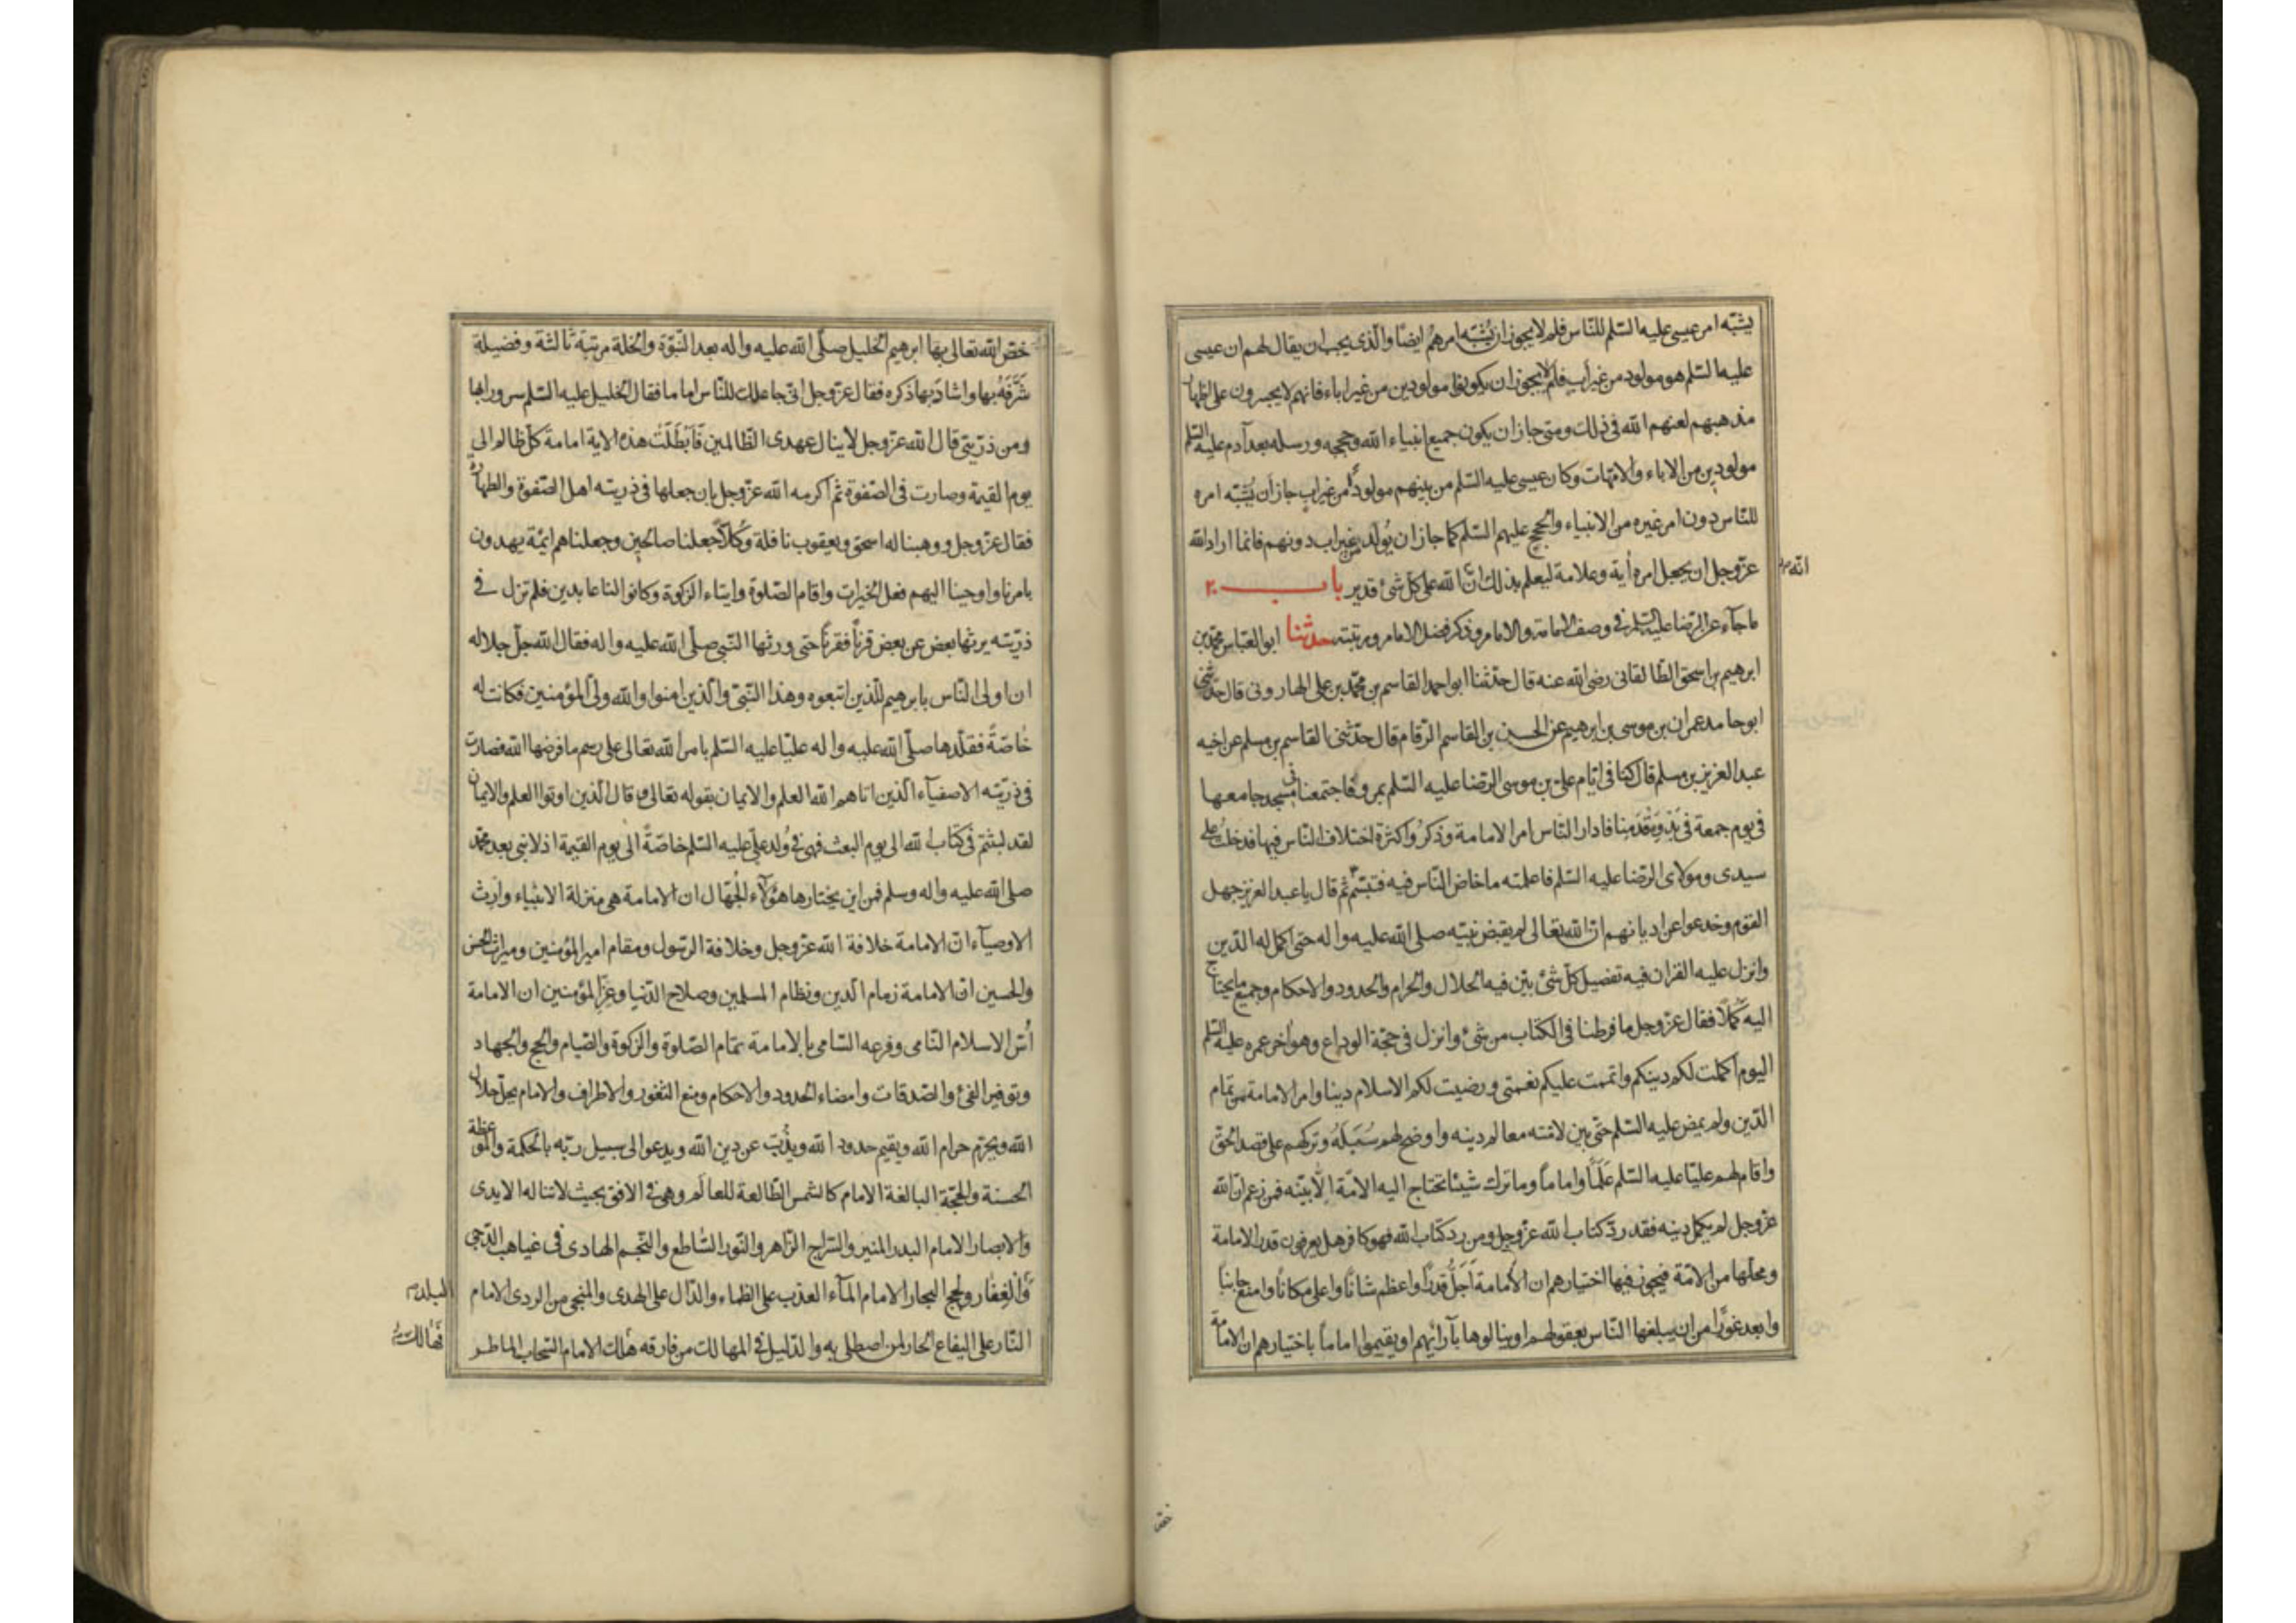 يشبّه امر عيسى عليه السّلم للنّاس فلم لا يجوز ان يُشبّه امرهُم ايضًا والّذى يجب ان يقال لهم ان عيسى
عليه السّلم هو مولود من غير أب فلم لا يجوز ان يكونوا مولودين من غير اباء فانهم لا يجسرون على اظهار
مذهبهم لعنهم الله فى ذلك ومتى جاز ان يكون جميع انبياء الله وحججه ورسله بعد آدم عليه السّلم
مولودين من الاباء والامّهات وكان عيسى عليه السّلم من بينهم مولودًا من غير اب جاز أن يُشبّه امره
للنّاس دون امر غيره من الانبياء والحجج عليهم السّلم كما جاز ان يُولَد من غير اب دونهم فانما اراد الله
عزّ وجل ان يجعل امره أية وعلامة ليعلم بذلك انّ الله على كلّ شئ قدير باب ٢٠
الله
ما جآء عن الرّضا عليه السّلم فى وصف الامامة والامام وذكر فضل الامام ورتبته حدثنا ابو العبّاس محمّد بن
ابرهيم بن اسحق الطّالقانى رضى الله عنه قال حدّثنا ابو احمد القاسم بن محمّد بن على الهارونى قال حدّثنى
ابو حامد عمران بن موسى بن ابرهيم عن الحسين بن القاسم الرّقام قال حدّثنى القاسم بن مسلم عن اخيه
عبد العزيز بن مسلم قال كنا فى ايّام علىّ بن موسى الرّضا عليه السّلم بمرو فاجتمعنا فى مسجد جامعها
فى يوم جمعة فى بَدْوِ مَقْدَمِنا فادار النّاس امر الامامة وذكرُوا كثرة اختلاف النّاس فيها فدخلتُ على
سيدى ومولاى الرّضا عليه السّلم فاعلمته ما خاض النّاس فيه فتبسّم ثم قال يا عبد العزيز جهل
القوم وخدعوا عن اديانهم انّ الله تعالى لم يقبض نبيّه صلى الله عليه واله حتى اكمل له الدّين
وانزل عليه القران فيه تفصيل كلّ شئ بيّن فيه الحلال والحرام والحدود والاحكام وجميع ما يحتاج
اليه كَمَلًا فقال عزّ وجل ما فرطنا فى الكتاب من شئ وانزل فى حجّة الوداع وهو اخر عمره عليه السّلم
اليوم اكملت لكم دينكم واتممت عليكم نعمتى ورضيت لكم الاسلام دينا وامر الامامة من تمام
الدّين ولم يمض عليه السّلم حتّى بين لامّته معالم دينه واوضح لهم سُبُلَهُ وتركهم على قصد الحقّ
واقام لهم عليّا عليه السّلم عَلَمًا واماماً وما ترك شيئا تحتاج اليه الامّة الّا بيّنه فمن زعم انّ الله
عزّ وجل لم يكمل دينه فقد ردّ كتاب الله عزّ وجل ومن رد كتاب الله فهو كافر هل يعرفون قدر الامامة
ومحلّها من الامّة فيجوز فيها اختيارهم ان الامامة أَجَلُّ قدرًا واعظم شانًا واعلى مكانًا وامنع جانبًا
وابعد غورًا من ان يبلغها النّاس بعقولهم او ينالوها بآرائهم او يقيموا اماماً باختيارهم ان الامامة
خصّ
خصّ الله تعالى بها ابرهيم الخليل صلّى الله عليه واله بعد النّبوّة والخلة مرتبة ثالثة وفضيلة
شَرَّفَهُ بها واشادَ بها ذكره فقال عزّ وجل انى جاعلك للنّاس اماما فقال الخليل عليه السّلم سرورا بها
ومن ذرّيتى قال الله عزّ وجل لا ينال عهدى الظّالمين فَأَبْطَلَتْ هذه الاية امامة كلّ ظالم الى
يوم القيمة وصارت فى الصّفوة ثم اكرمه الله عزّ وجل بان جعلها فى ذريته اهل الصّفوة والطهارة
فقال عزّ وجل ووهبنا له اسحق ويعقوب نافلة وَكُلًّا جعلنا صالحين وجعلناهم ائمّة يهدون
بامرنا واوحينا اليهم فعل الخيرات واقام الصّلوة وايتاء الزكوة وكانوا لنا عابدين فلم تزل فى
ذرّيّته يرثها بعض عن بعض قرناً فقرناً حتى ورثها النّبى صلّى الله عليه واله فقال الله جلّ جلاله
ان اولى النّاس بابرهيم للّذين اتبعوه وهذا النّبىّ والّذين امنوا والله ولىّ المؤمنين فكانت له
خاصّةً فقلّدها صلّى الله عليه واله عليّا عليه السّلم بامر الله تعالى على رسم ما فرضها الله فصارت
فى ذرّيّته الاصفيآء الّذين اتاهم الله العلم والايمان بقوله تعالى وقال الّذين اوتوا العلم والايمان
لقد لبثتم فى كتاب الله الى يوم البعث فهى فى وُلد علىّ عليه السّلم خاصّةً الى يوم القيمة اذ لا نبى بعد محمّد
صلى الله عليه واله وسلم فمن اين يختارها هؤلآء الجُهّال ان الامامة هى منزلة الانبياء وارث
الاوصيآء انّ الامامة خلافة الله عزّ وجل وخلافة الرّسول ومقام امير المؤمنين وميراث الحسن
والحسين انّ الامامة زمام الّدين ونظام المسلمين وصلاح الدّنيا وعزّ المؤمنين ان الامامة
أُسّ الاسلام النّامى وفرعه السّامى بالامامة تمام الصّلوة والزكوة والصّيام والحج والجهاد
وتوفير الفئ والصّدقات وامضاء الحدود والاحكام ومنع الثغور والاطراف والامام يحلّ حلال
الله ويحرّم حرام الله ويقيم حدود الله ويذُبّ عن دين الله ويدعو الى سبيل ربّه بالحكمة والموعظة
الحسنة والحجّة البالغة الامام كالشّمس الطّالعة للعالَم وهى فى الافق بحيث لا تناله الايدى
والابصار الامام البدر المنير والسّراج الزّاهر والنّور السّاطع والنّجم الهادى فى غياهب الدّجى
والقِفار ولجج البحار الامام المآء العذب على الظماء والدّال على الهدى والمنجى من الردى الامام
البلد
النّار على اليفاع الحار لمن اصطلى به والدّليل فى المهالك من فارقه هلك الامام السّحاب الماطر
فهالك